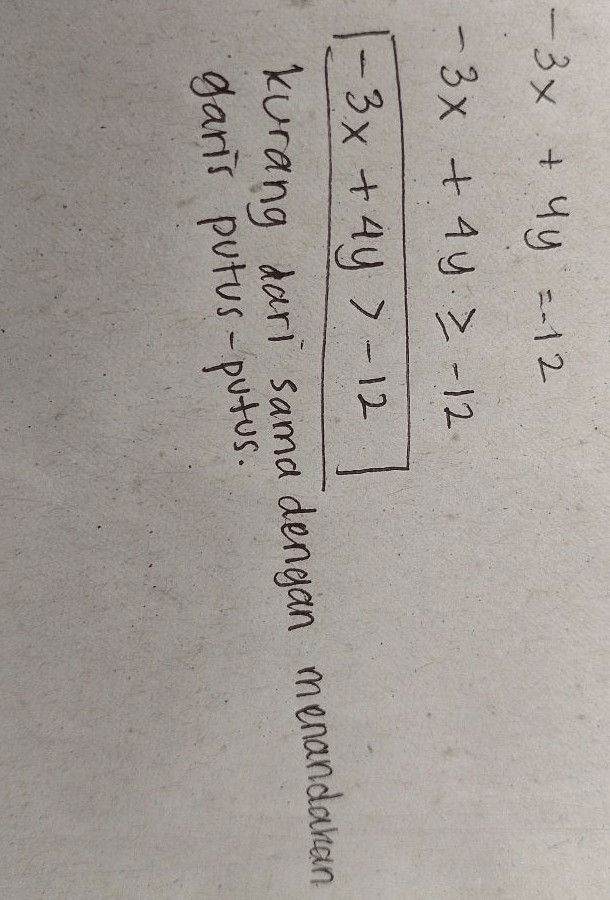 -3x + 4y = -12
-3x + 4y ≥ -12
-3x + 4y > -12
kurang dari sama dengan menandakan
garis putus-putus.